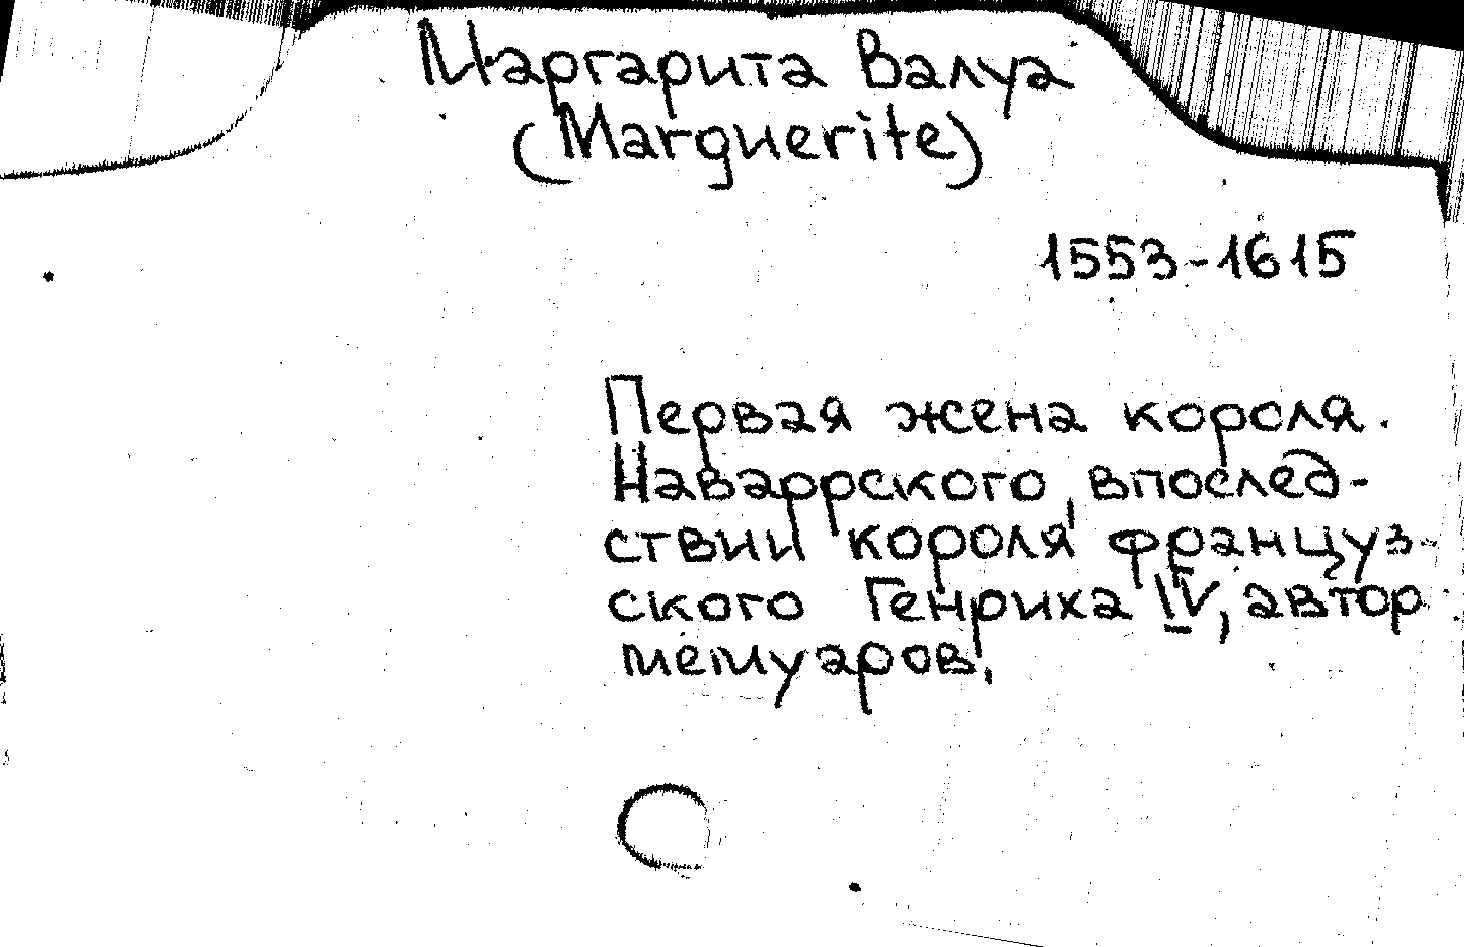 Маргарита Валуа
(Marguerite)
1553-1615
Первая жена короля
Наваррского, впослед-
ствии короля француз-
ского Генриха IV, автор
мемуаров.